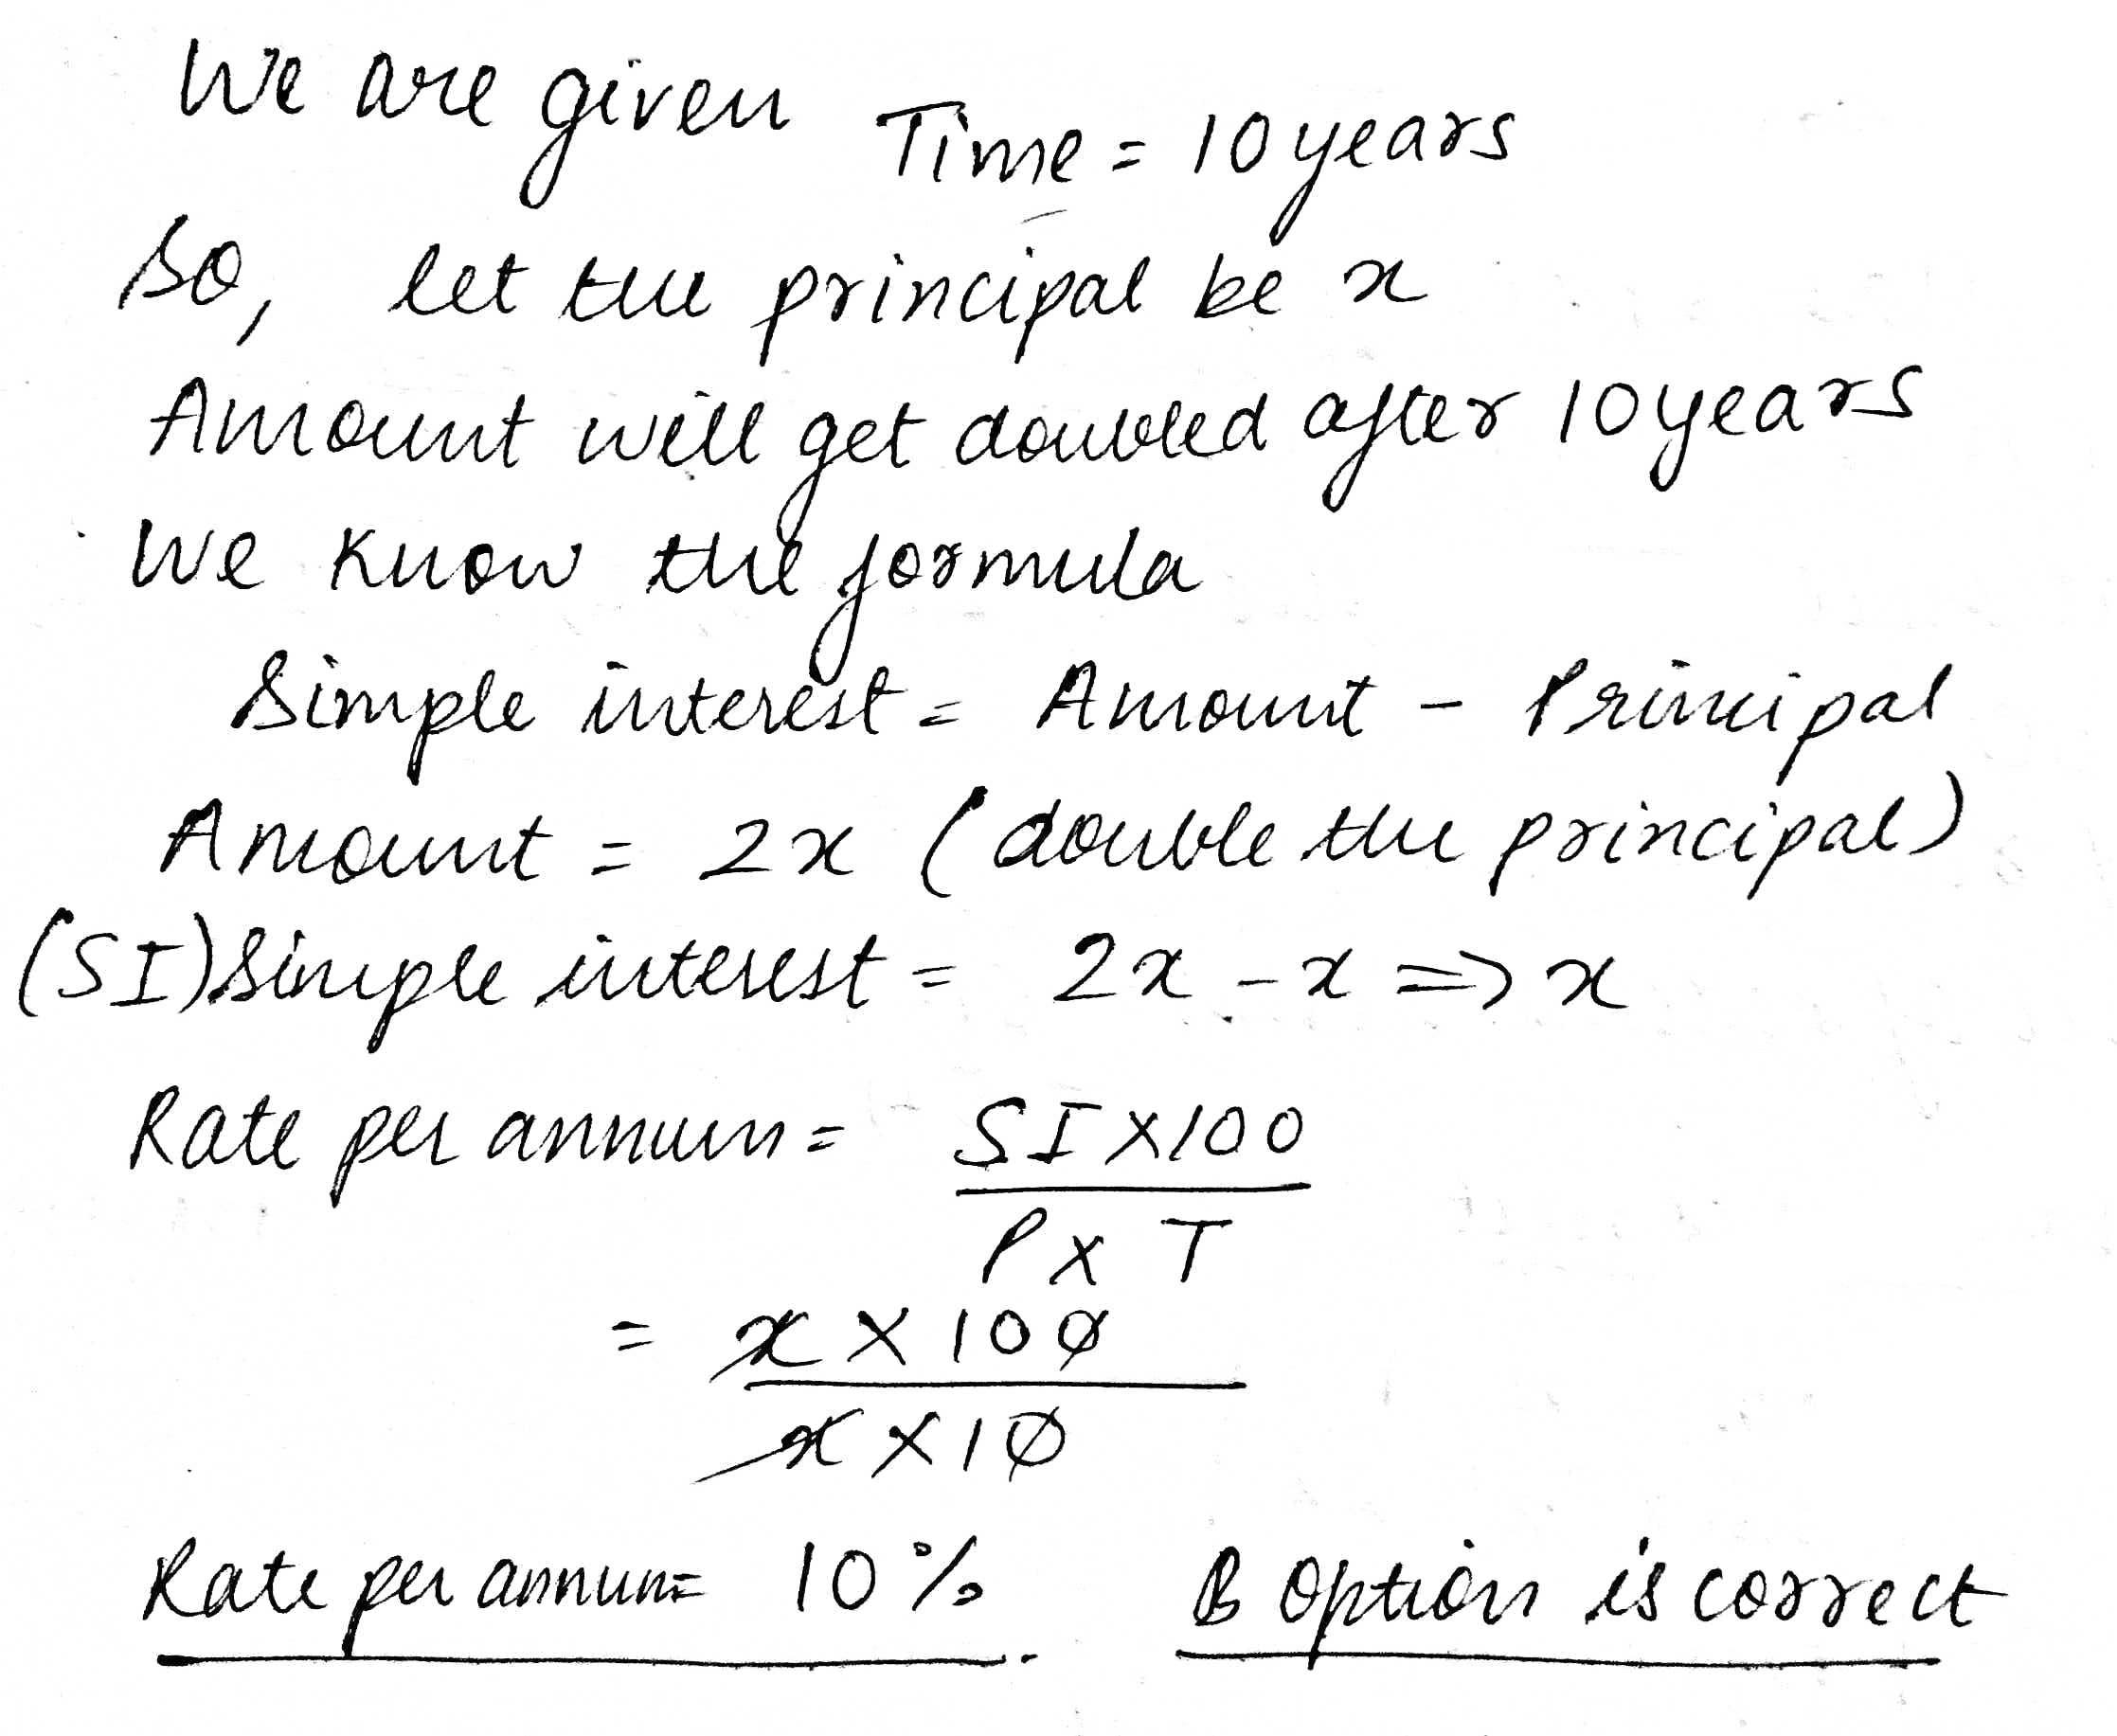 We are given Time = 10 years
So, let the principal be x
Amount will get doubled after 10 years
We know the formula
Simple interest = Amount - Principal
Amount = 2x (double the principal)
(SI) Simple interest = 2x - x => x
Rate per annum = SI X 100
P X T
= x X 100
x X 10
Rate per annum = 10%. B option is correct